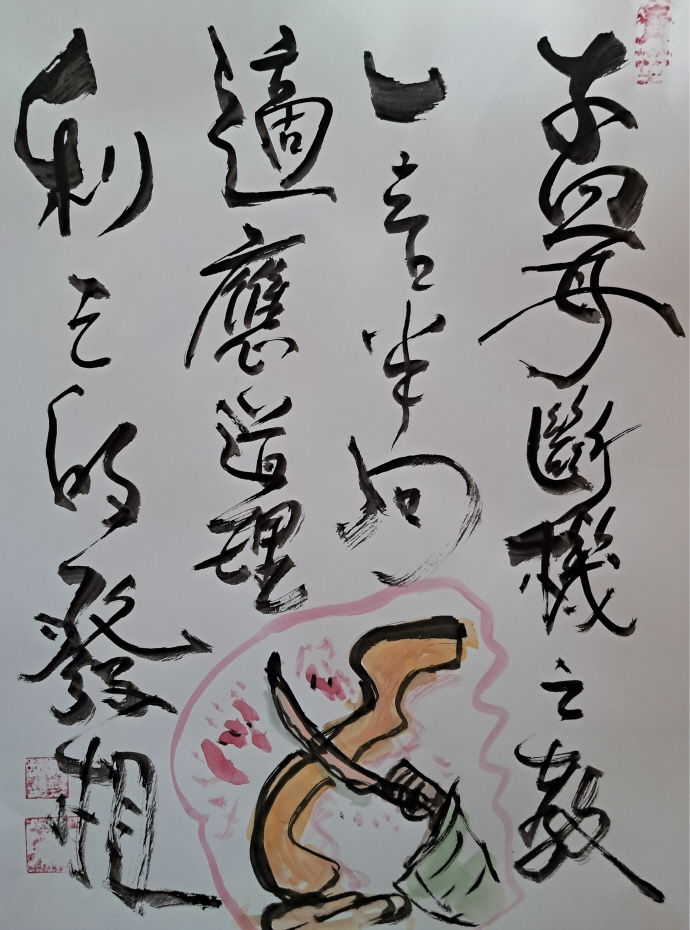 孟母斷機之教
一言半句
適應道理
利之的發相